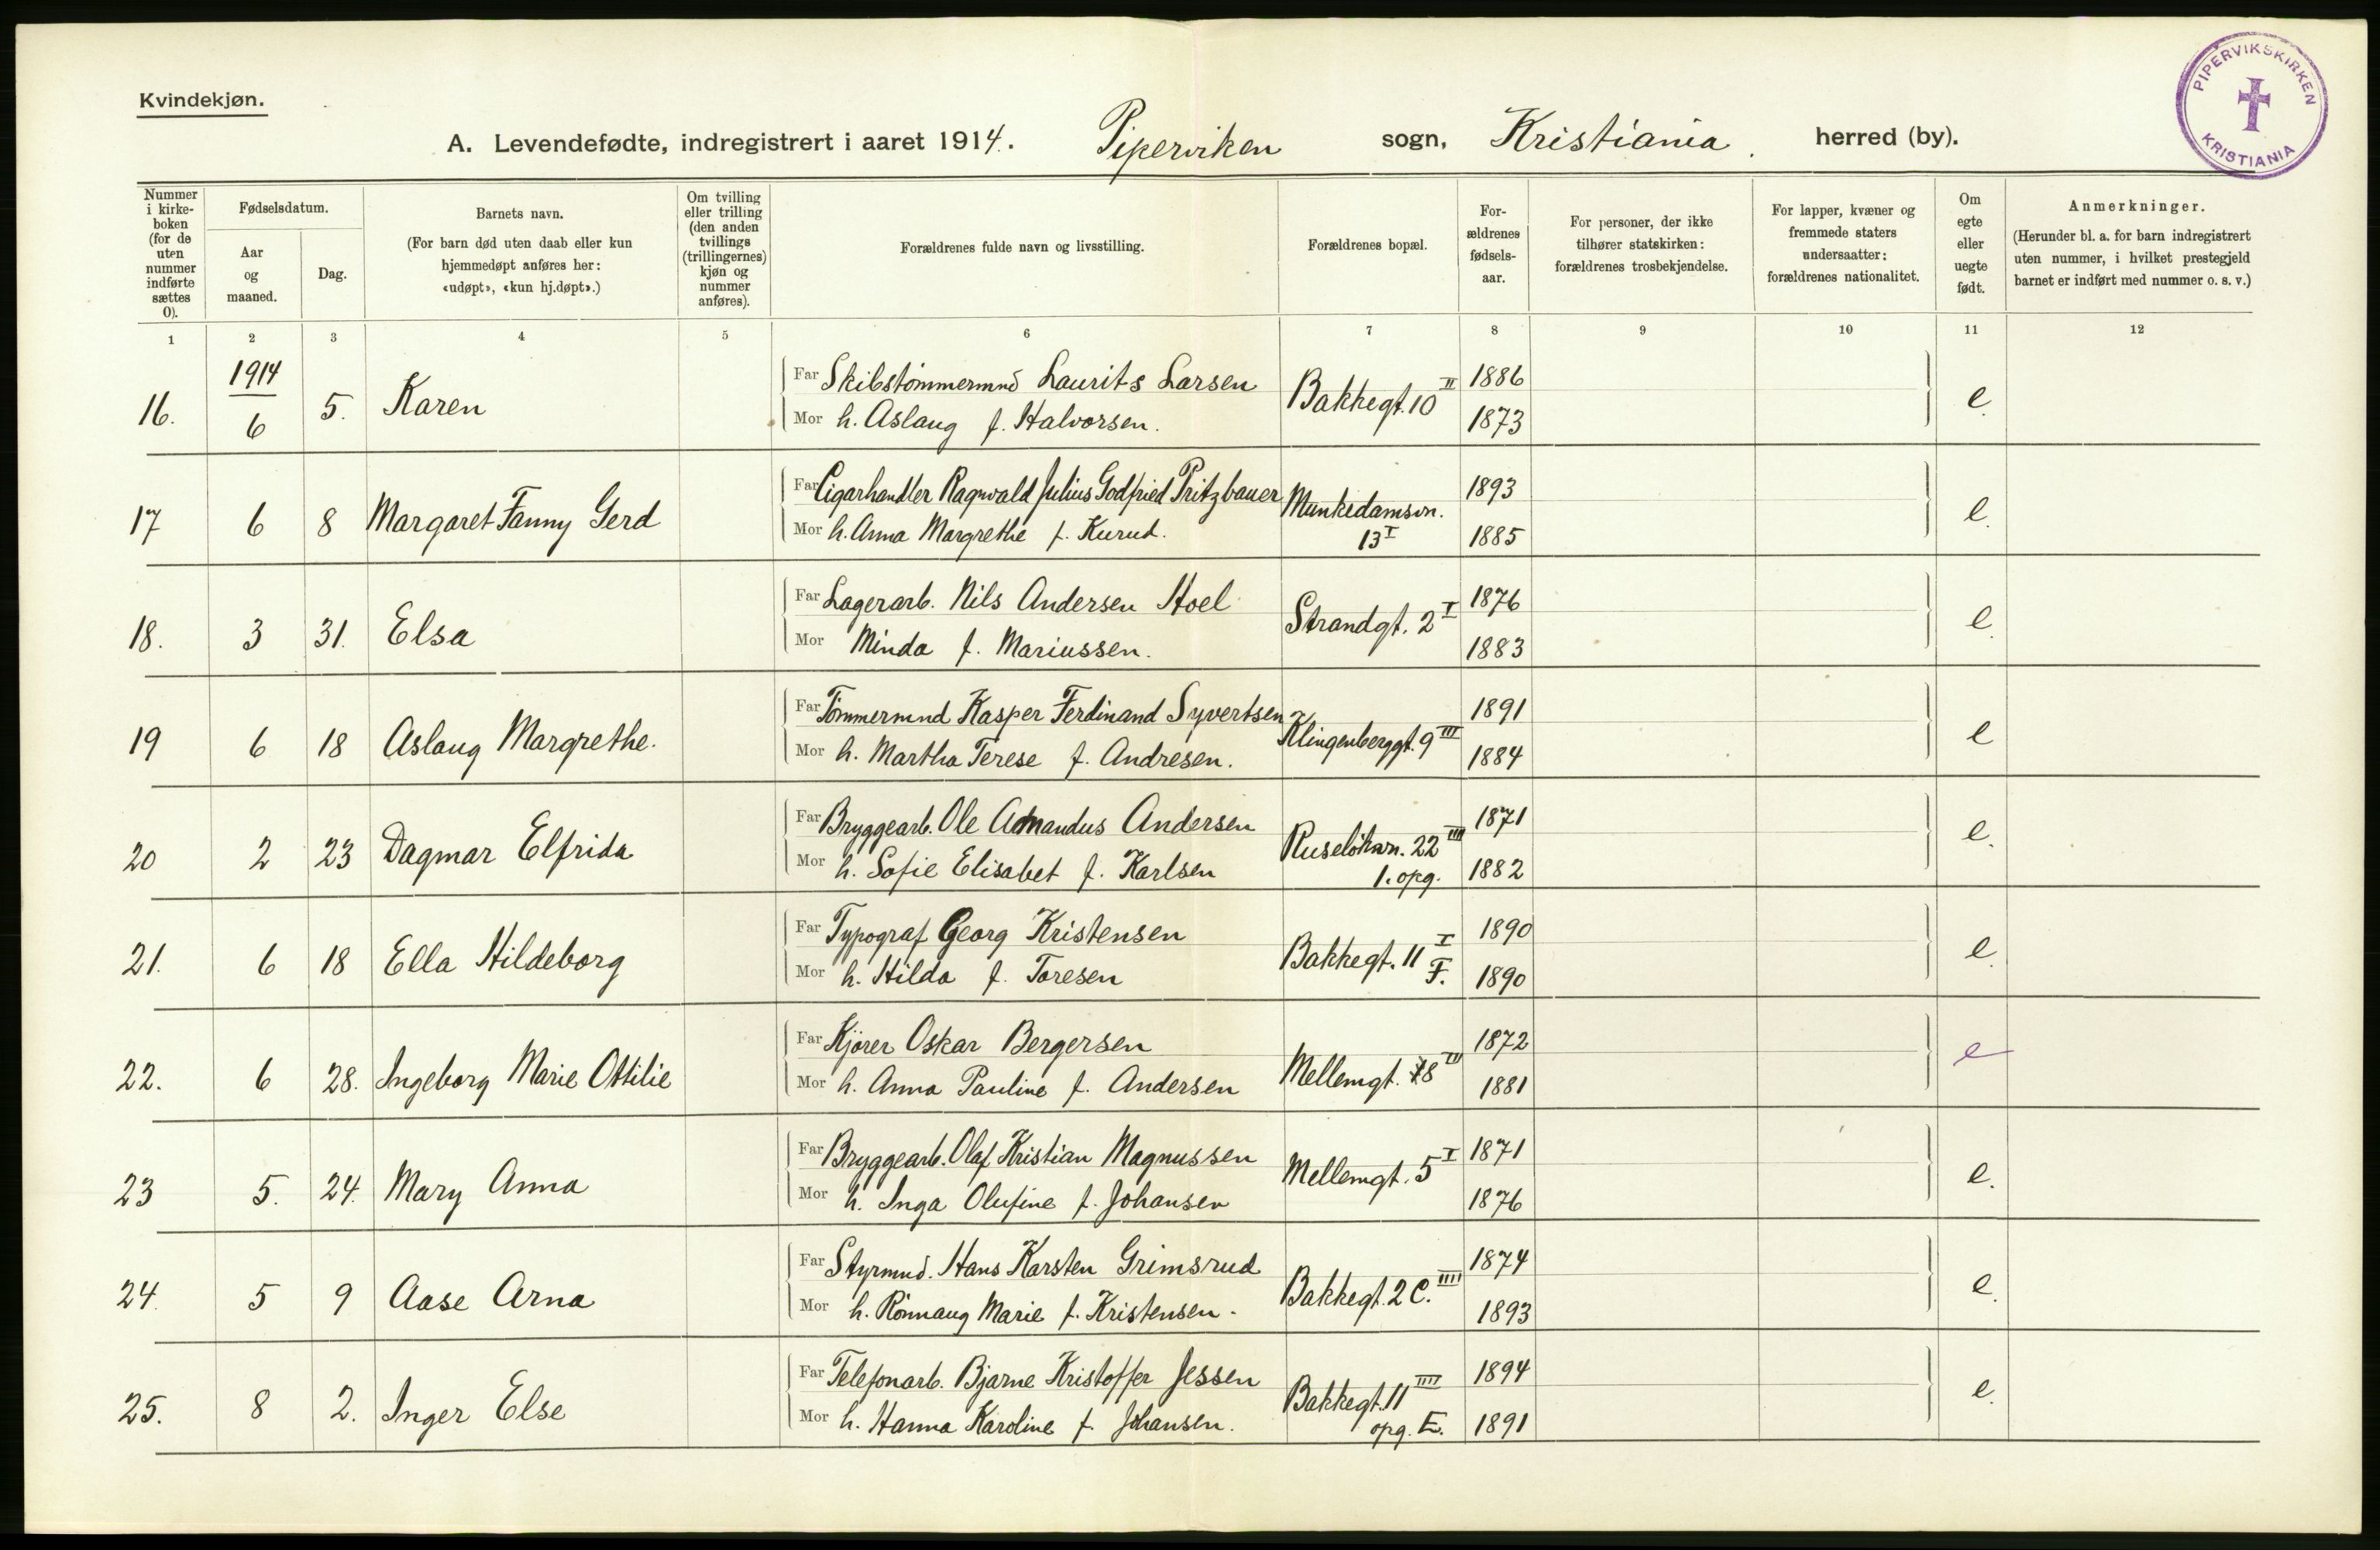 Kvindekjøn.
A. Levendefødte, indregistrert i aaret 1914. Piperviken sogn, Kristiania. herred (by).
PIPERVIKSKIRKEN
KRISTIANIA
Nummer i kirke-boken (for de uten nummer indførte sættes 0).
Fødselsdatum.
Aar og maaned.
Dag.
Barnets navn.
(For barn død uten daab eller kun hjemmedøpt anføres her: «udøpt», «kun hj.døpt».)
Om tvilling eller trilling (den anden tvillings (trillingernes) kjøn og nummer anføres).
Forældrenes fulde navn og livsstilling.
Forældrenes bopæl.
For-ældrenes fødsels-aar.
For personer, der ikke tilhører statskirken: forældrenes trosbekjendelse.
For lapper, kvæner og fremmede staters undersaatter: forældrenes nationalitet.
Om egte eller uegte født.
Anmerkninger.
(Herunder bl. a. for barn indregistrert uten nummer, i hvilket prestegjeld barnet er indført med nummer o. s. v.)
1 2 3 4 5 6 7 8 9 10 11 12
16. 1914 6 5. Karen Far Skibstömmermnd Laurits Larsen Bakkegt. 10 II 1886 e.
Mor h. Aslaug f. Halvorsen. 1873
17 6 8 Margaret Fanny Gerd Far Cigarhandler Ragnvald Julius Godfried Pritzbauer Munkedamsvn. 1893 e.
Mor h. Anna Margrethe f. Kurud. 13 I 1885
18. 3 31. Elsa Far Lagerarb. Nils Andersen Hoel Strandgt. 2 I 1876 e.
Mor Minda f. Mariussen. 1883
19 6 18 Aslaug Margrethe. Far Tömmermnd Kasper Ferdinand Syvertsen Klingenberggt. 9 III 1891 e
Mor h. Martha Terese f. Andresen. 1884
20 2 23 Dagmar Elfrida Far Bryggearb. Ole Amandus Andersen Ruselökvn. 22 III 1871 e.
Mor h. Sofie Elisabet f. Karlsen 1. opg. 1882
21. 6 18 Ella Hildeborg Far Typograf Georg Kristensen Bakkegt. 11 I 1890 e.
Mor h. Hilda f. Toresen F. 1890
22. 6 28. Ingeborg Marie Ottilie Far Kjörer Oskar Bergersen Mellemgt. 8 III 1872 e
Mor h. Anna Pauline f. Andersen 1881
23 5. 24. Mary Anna Far Bryggearb. Olaf Kristian Magnussen Mellemgt. 5 I 1871 e.
Mor h. Inga Olufine f. Johansen 1876
24. 5 9 Aase Arna Far Styrmnd. Hans Karsten Grimsrud Bakkegt. 2 C. IIII 1874 e.
Mor h. Rönnaug Marie f. Kristensen. 1893
25. 8 2. Inger Else Far Telefonarb. Bjarne Kristoffer Jessen Bakkegt. 11 IIII 1894 e.
Mor h. Hanna Karoline f. Johansen. opg. E. 1891